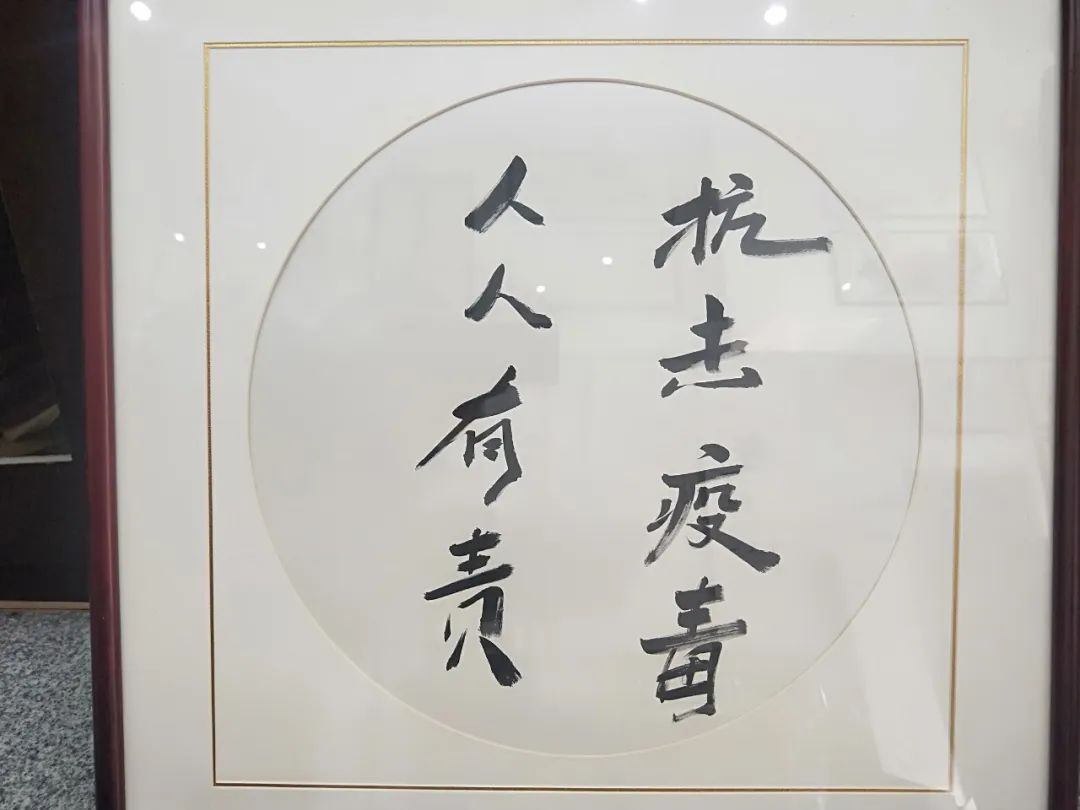 抗击疫毒
人人有责